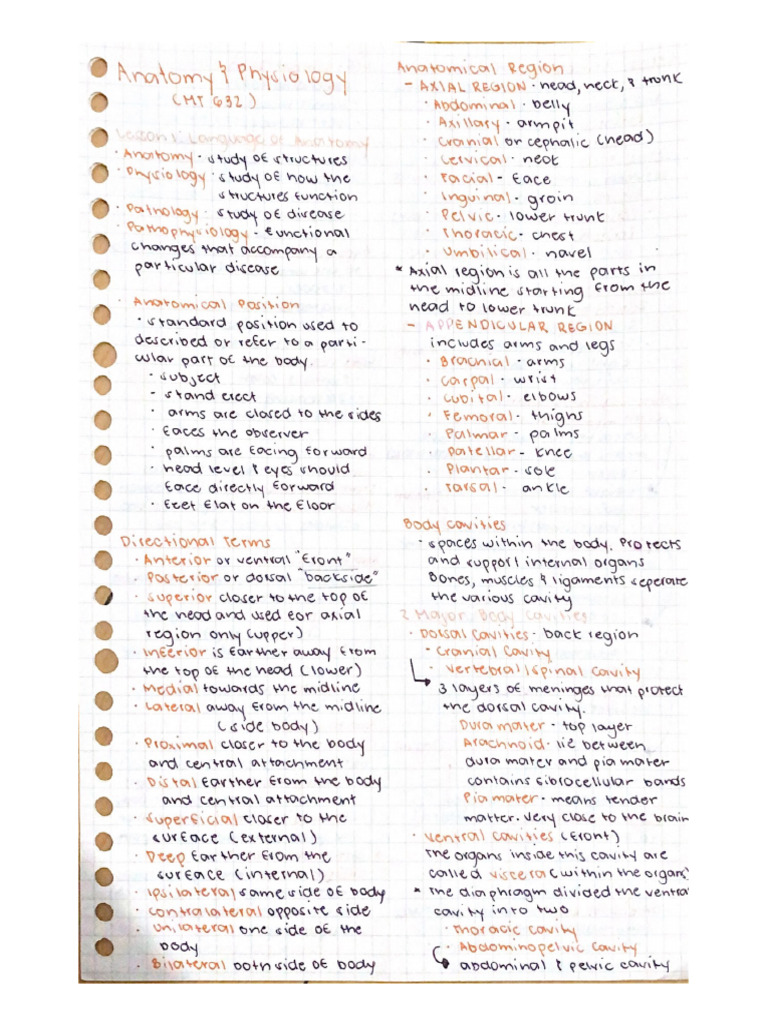 Anatomy & Physiology
(MT 632)
Lesson 1: Language of Anatomy
· Anatomy - study of structures
· Physiology - study of how the
structures function
· Pathology - study of disease
· Pathophysiology - functional
changes that accompany a
particular disease
· Anatomical Position
· standard position used to
described or refer to a parti-
cular part of the body.
· subject
- stand erect
· arms are closed to the sides
· faces the observer
· palms are facing forward
· head level & eyes should
face directly forward
· feet flat on the floor
Directional Terms
· Anterior or ventral "front"
· Posterior or dorsal "backside"
· Superior closer to the top of
the head and used for axial
region only (upper)
· Inferior is farther away from
the top of the head (lower)
· Medial towards the midline
· Lateral away from the midline
(side body)
· Proximal closer to the body
and central attachment
· Distal farther from the body
and central attachment
· Superficial closer to the
surface (external)
· Deep farther from the
surface (internal)
· Ipsilateral same side of body
· Contralateral opposite side
· Unilateral one side of the
body
· Bilateral both side of body
Anatomical Region
- AXIAL REGION - head, neck, & trunk
· Abdominal - belly
· Axillary - armpit
· Cranial or cephalic (head)
· Cervical - neck
· Facial - face
· Inguinal - groin
· Pelvic - lower trunk
· Thoracic - chest
· Umbilical - navel
* Axial region is all the parts in
the midline starting from the
head to lower trunk
- APPENDICULAR REGION
includes arms and legs
· Brachial - arms
· Carpal - wrist
· Cubital - elbows
· Femoral - thighs
· Palmar - palms
· Patellar - knee
· Plantar - sole
· Tarsal - ankle
Body Cavities
· spaces within the body. Protects
and support internal organs
Bones, muscles & ligaments seperate
the various cavity
2 Major Body Cavities
· Dorsal Cavities - back region
- Cranial Cavity
· Vertebral/Spinal Cavity
3 layers of meninges that protect
the dorsal cavity.
Dura mater - top layer
Arachnoid - lie between
dura mater and pia mater
contains fibrocellular bands
Pia mater - means tender
matter. very close to the brain
· Ventral Cavities (Front)
The organs inside this cavity are
called viscera (within the organ)
* The diaphragm divided the ventra
cavity into two
· Thoracic cavity
· Abdominopelvic Cavity
abdominal & pelvic cavity